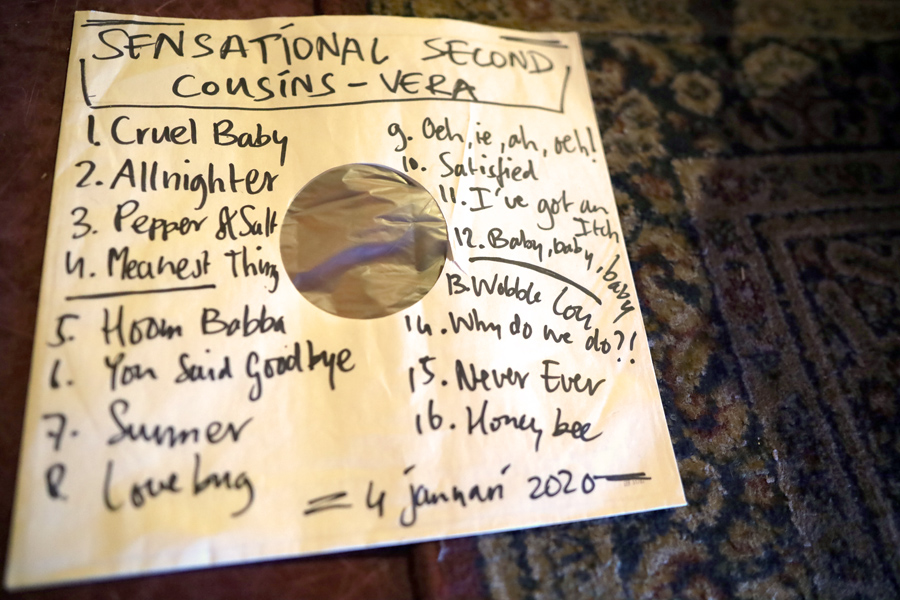 SENSATIONAL SECOND
COUSINS - VERA
1. Cruel Baby
2. Allnighter
3. Pepper & Salt
4. Meanest Thing
5. Hoom Babba
6. You Said Goodbye
7. Summer
8. Lovebug
9. Oeh, ie, ah, oeh!
10. Satisfied
11. I've got an
Itch
12. Baby, baby, baby
13. Wobble Lou
14. Why do we do?!
15. Never Ever
16. Honey bee
= 4 januari 2020